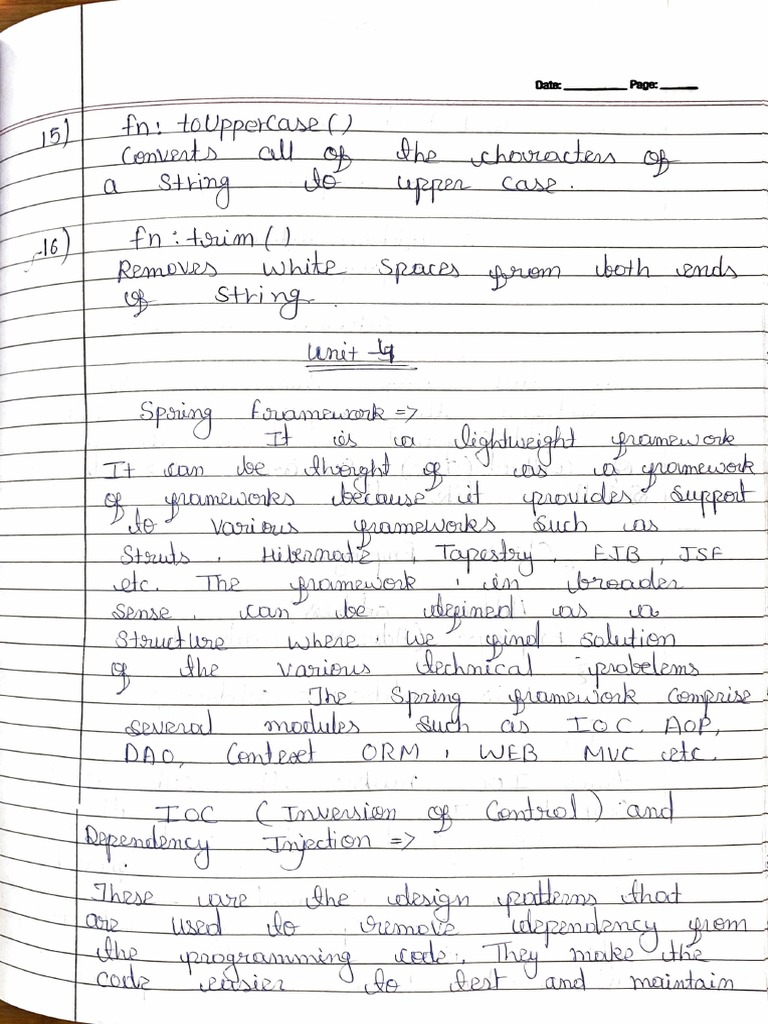 Date: ________ Page: _____
15) fn: toUpperCase()
Converts all of the characters of
a String to upper case.
16) fn: trim()
Removes white spaces from both ends
of String.
Unit - 4
Spring Framework =>
It is a lightweight framework
It can be thought of as a framework
of frameworks because it provides support
to various frameworks such as
Struts, Hibernate, Tapestry, EJB, JSF
etc. The framework, in broader
sense, can be defined as a
structure where we find solution
of the various technical probelems
The Spring framework comprise
several modules such as IOC, AOP,
DAO, Context ORM, WEB MVC etc.
IOC (Inversion of Control) and
Dependency Injection =>
These are the design patterns that
are used to remove dependency from
the programming code. They make the
code easier to test and maintain